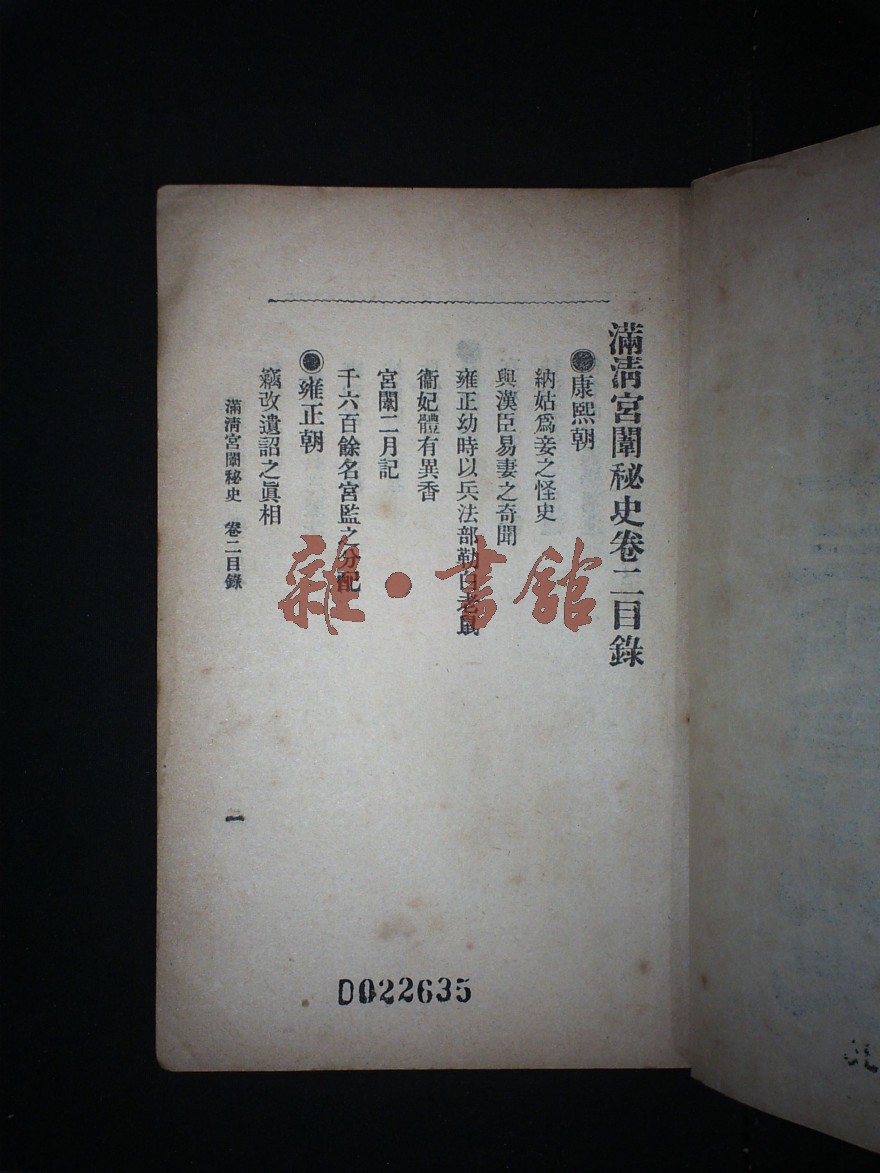 滿淸宮闈秘史卷二目錄
◉康熙朝
納姑爲妾之怪史
與漢臣易妻之奇聞
雍正幼時以兵法部勒白老鼠
衞妃體有異香
宮闈二月記
千六百餘名宮監之分配
◉雍正朝
竄改遺詔之眞相
滿淸宮闈秘史 卷二目錄
一
雜·書館
D022635